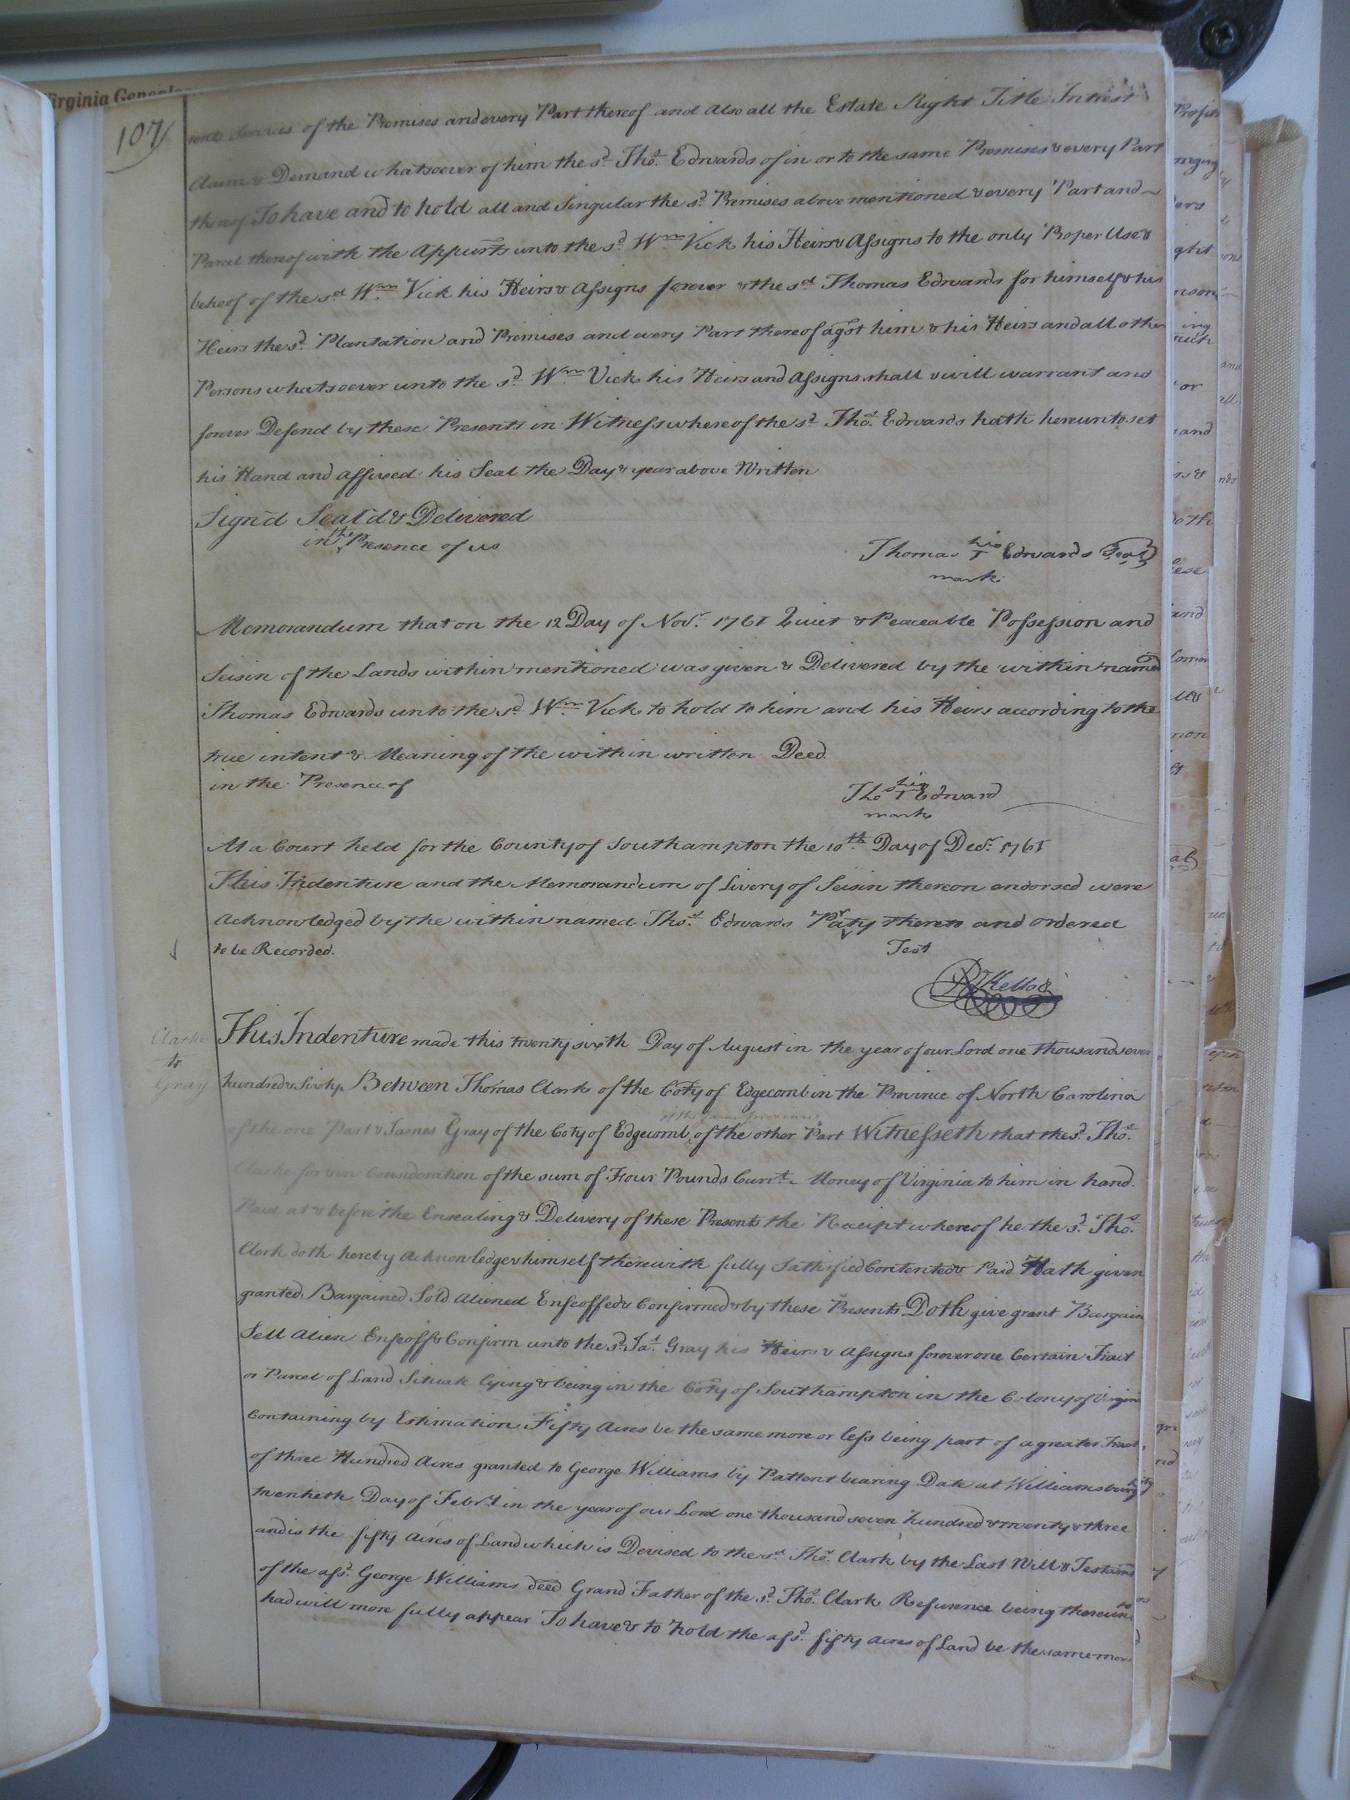 Virginia Genealo
107
rents Services of the Premises and every Part thereof and also all the Estate Right Title Intrest
Claim & Demand whatsoever of him the sd. Thos. Edwards of in or to the same Premises & every Part
thereof To have and to hold all and Singular the sd. Premises above mentioned & every Part and
Parcel thereof with the Appurts unto the sd. Wm. Vick his Heirs & Assigns to the only Proper Use &
behoof of the sd. Wm. Vick his Heirs & Assigns forever & the sd. Thomas Edwards for himself & his
Heirs the sd. Plantation and Premises and every Part thereof agst him & his Heirs and all other
Persons whatsoever unto the sd. Wm. Vick his Heirs and Assigns shall & will warrant and
forever Defend by these Presents in Witness whereof the sd. Thos. Edwards hath hereunto set
his Hand and affixed his Seal the Day & year above Written
Sign'd Seal'd & Delivered
in the Presence of us
Thomas his T Edwards Seal
mark
Memorandum that on the 12 Day of Novr. 1761 Quiet & Peaceable Possession and
Seisin of the Lands within mentioned was given & Delivered by the within named
Thomas Edwards unto the sd. Wm. Vick to hold to him and his Heirs according to the
true intent & Meaning of the within written Deed
in the Presence of
Tho his T Edward
mark
At a Court held for the County of Southampton the 10th. Day of Decr. 1761
This Indenture and the Memorandum of Livery of Seisin thereon endorsed were
Acknowledged by the within named Thos. Edwards Party thereto and ordered
to be Recorded.
Test
R Kello
Clarke
to
Gray
This Indenture made this twenty sixth Day of August in the year of our Lord one thousand seven
hundred & Sixty Between Thomas Clark of the Coty of Edgecomb in the Province of North Carolina
of the one Part & James Gray of the Coty of Edgecomb of the same province of the other Part Witnesseth that the sd. Thos.
Clarke for & in Consideration of the sum of Four Pounds Currt. Money of Virginia to him in hand
Paid at & before the Ensealing & Delivery of these Presents the Receipt whereof he the sd. Thos.
Clark doth hereby Acknowledge & himself therewith fully Sattisfied Contented & Paid Hath given
granted Bargained Sold Aliened Enfeoffed & Confirmed & by these Presents Doth give grant Bargain
Sell Alien Enfeoff & Confirm unto the sd. Jas. Gray his Heirs & Assigns forever one Certain Tract
or Parcel of Land Situate lying & being in the Coty of Southampton in the Colony of Virgin
Containing by Estimation Fifty Acres be the same more or less being part of a greater Tract
of three Hundred Acres granted to George Williams by Pattent bearing Date at Williamsburg
twentieth Day of Febry. in the year of our Lord one thousand seven hundred & twenty & three
and is the fifty Acres of Land which is Devised to the sd. Thos. Clark by the Last Will & Testamt
of the afsd. George Williams deed Grand Father of the sd. Thos. Clark Referrence being thereunto
had will more fully appear To have & to hold the afsd. fifty Acres of Land be the same more